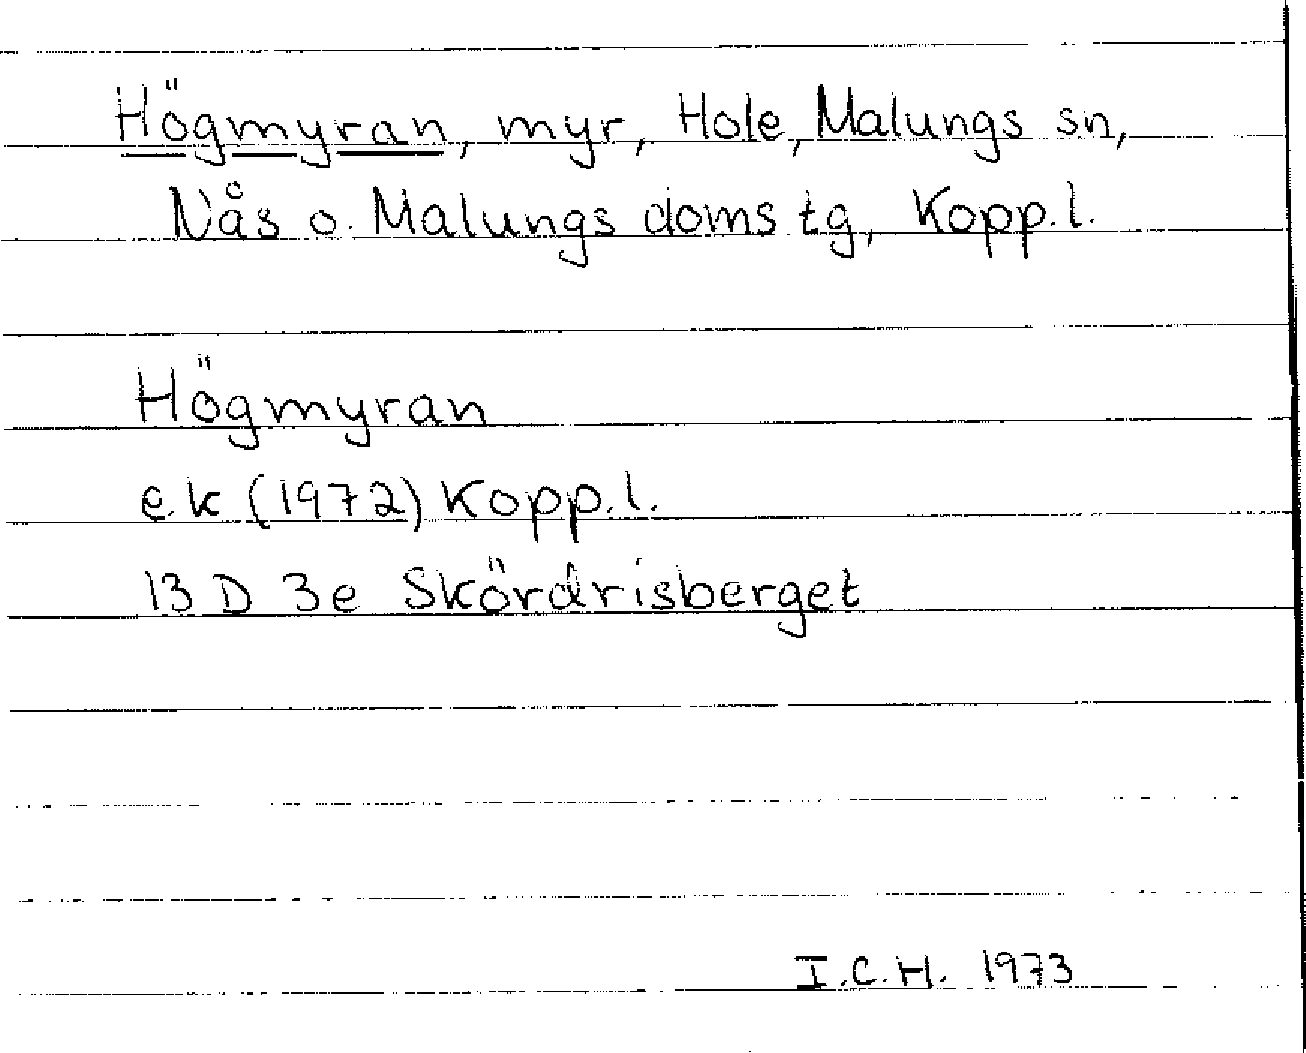 Högmyran, myr, Hole, Malungs sn,
Nås o. Malungs doms tg, Kopp.l.
Högmyran
e.k (1972) Kopp.l.
13 D 3e Skördrisberget
I.C.H. 1973